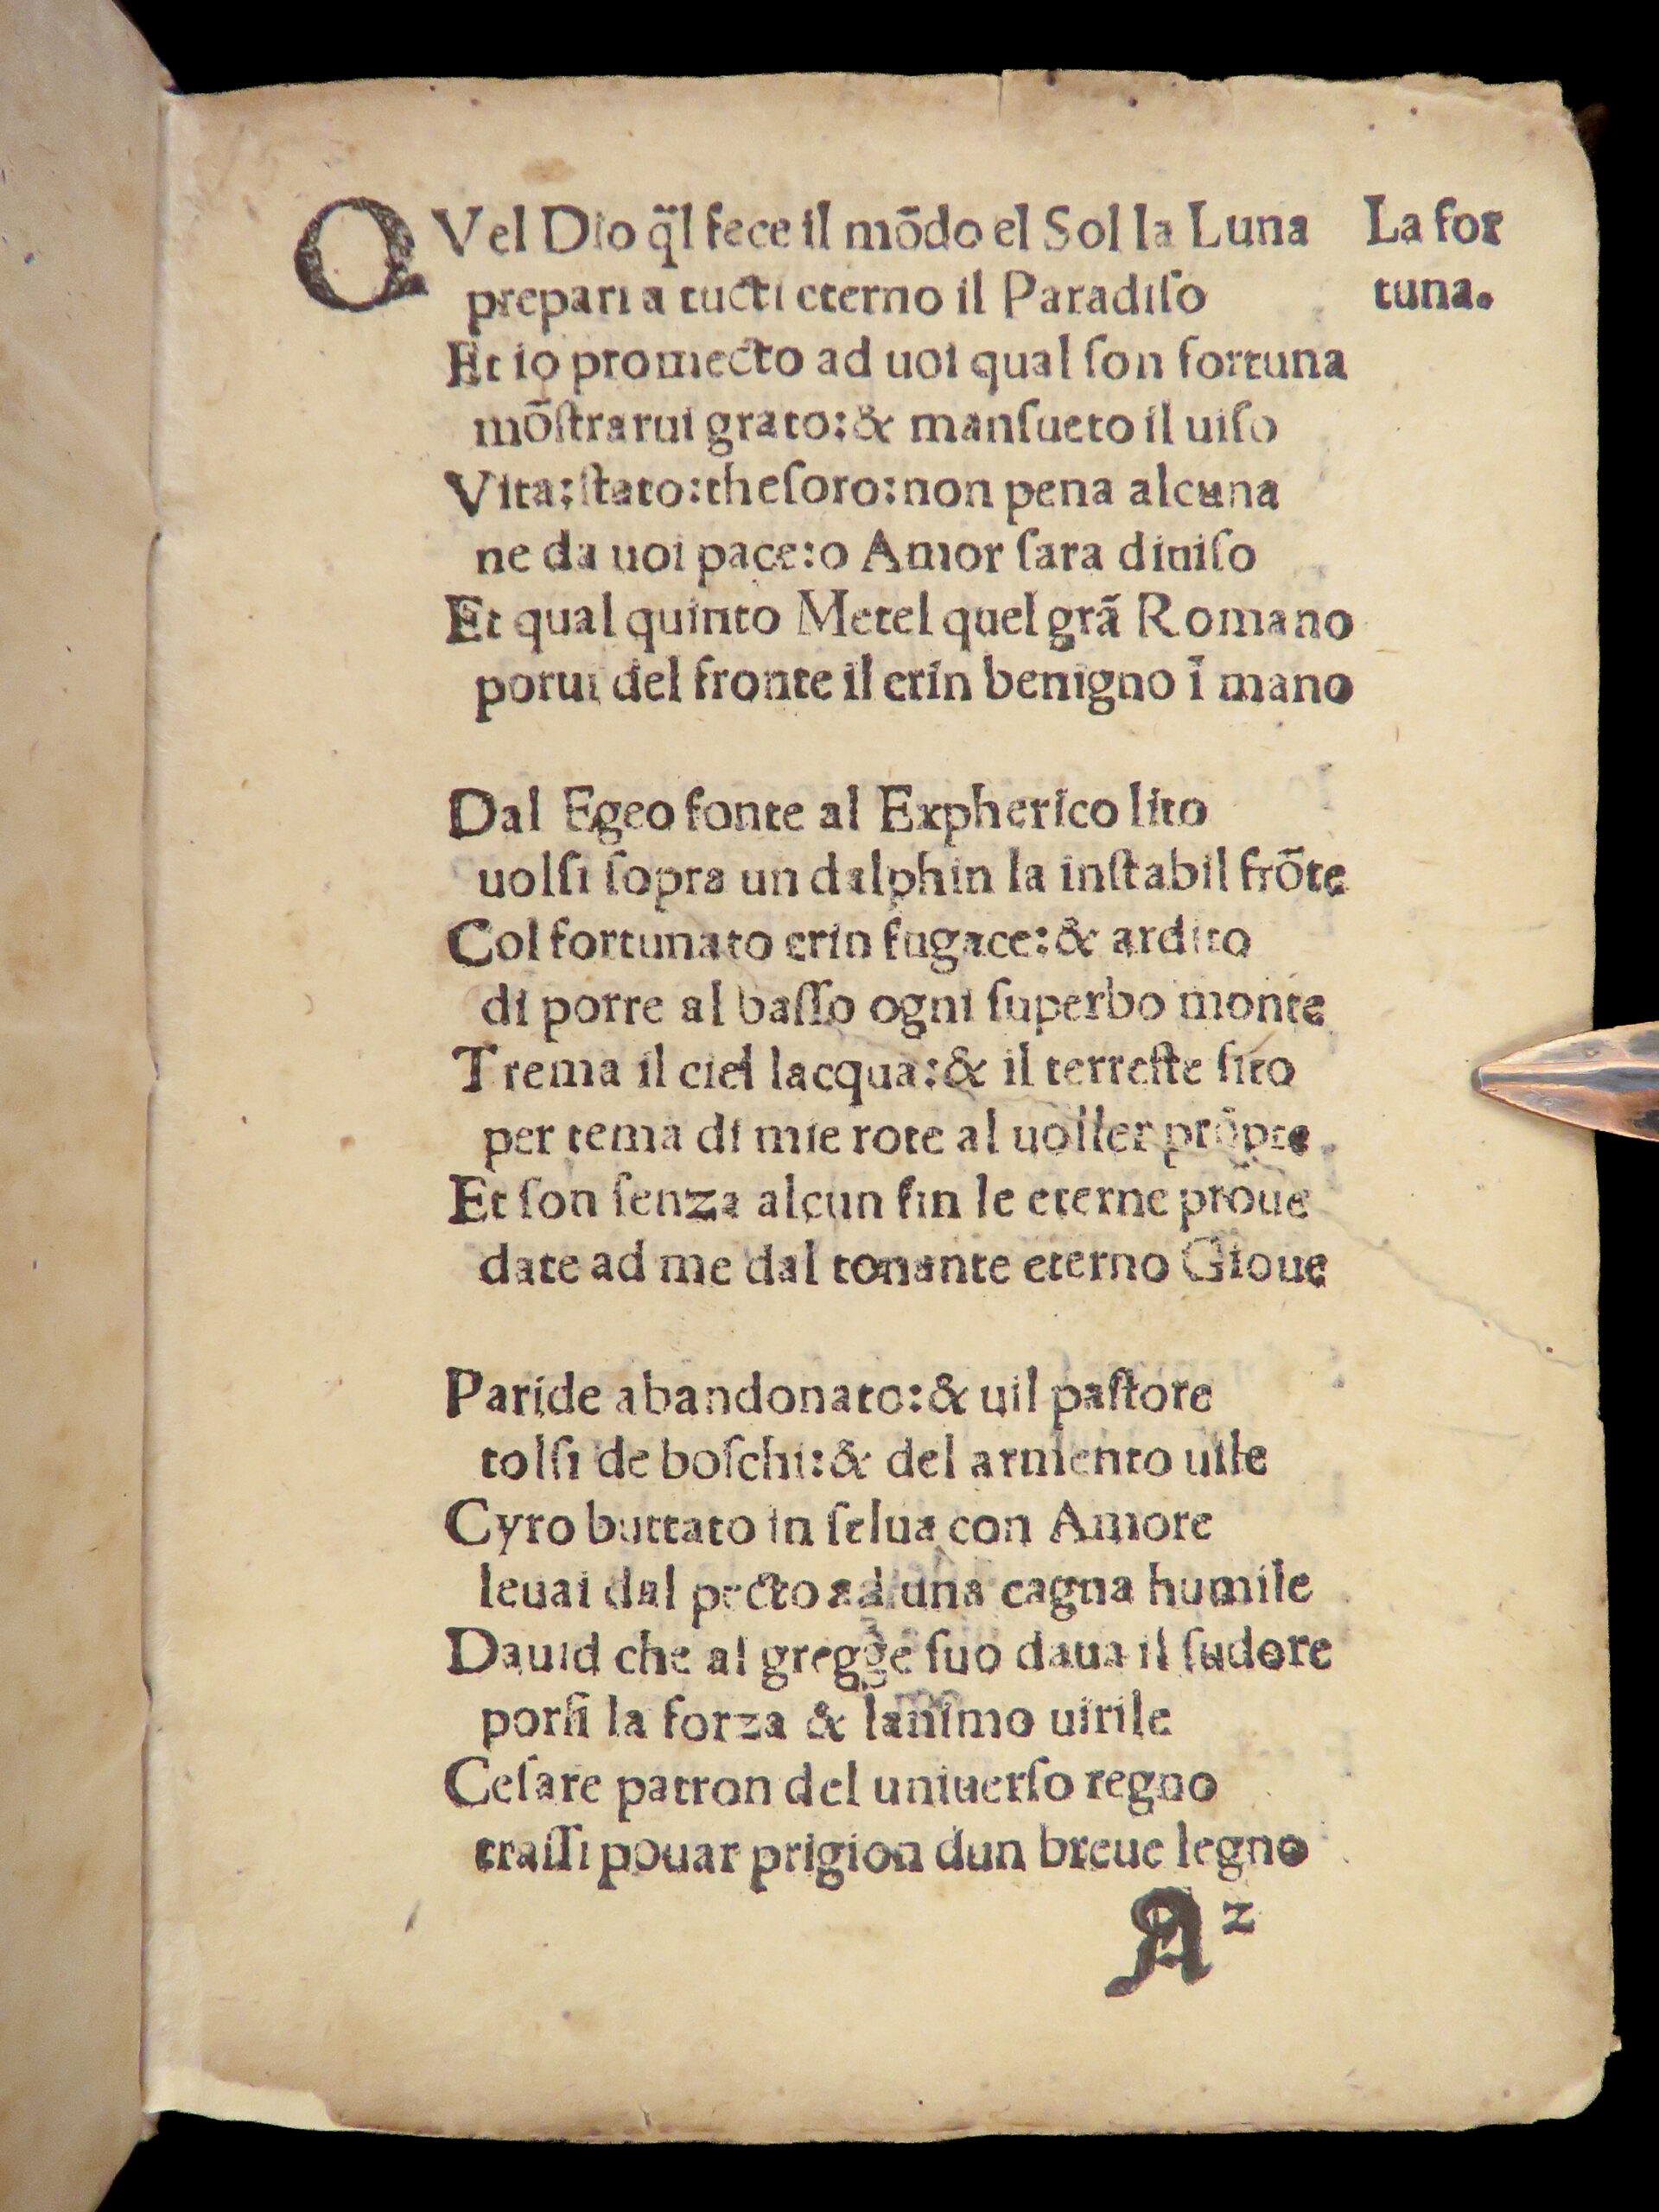 QVel Dio q̃l fece il mõdo el Sol la Luna
La for
prepari a tucti eterno il Paradiſo
tuna.
Et io promecto ad uoi qual ſon fortuna
mõſtrarui grato:& manſueto il uiſo
Vita:ſtato:theſoro:non pena alcuna
ne da uoi pace:o Amor ſara diuiſo
Et qual quinto Metel quel grã Romano
porui del fronte il crin benigno ĩ mano
Dal Egeo fonte al Expherico lito
uolſi ſopra un dalphin la inſtabil frõte
Col fortunato crin fugace:& ardito
di porre al baſſo ogni ſuperbo monte
Trema il ciel lacqua:& il terreſte ſito
per tema di mie rote al uolter prõpte
Et ſon ſenza alcun fin le eterne proue
date ad me dal tonante eterno Gioue
Paride abandonato:& uil paſtore
tolſi de boſchi:& del armento uile
Cyro buttato in ſelua con Amore
leuai dal pecto ad una cagna humile
Dauid che al gregge ſuo daua il ſudore
porſi la forza & lanimo uirile
Ceſare patron del uniuerſo regno
traiſſi pouar prigion dun breue legno
A 2